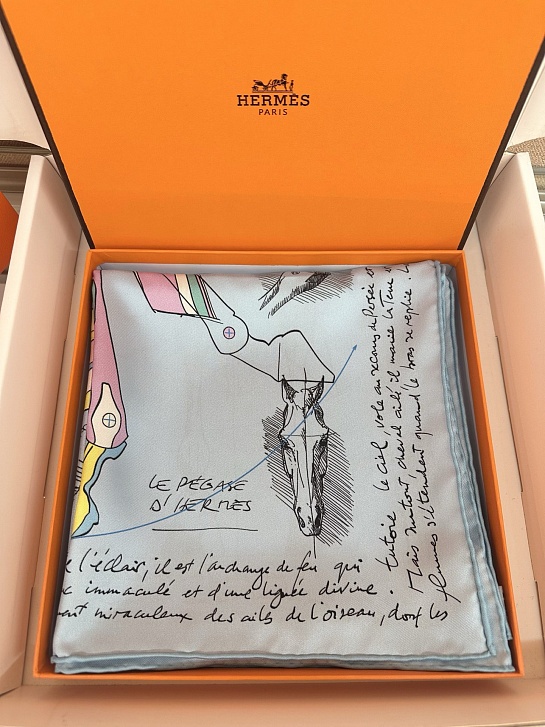 HERMÈS
PARIS
LE PÉGASE
D'HERMÈS
l'éclair, il est l'archange de feu qui
immaculé et d'une lignée divine.
miraculeux des ailes de l'oiseau, dont les
tutoie le ciel, vole au secours de Persée
Mais surtout cheval ailé, il marie la Terre
plumes s'étendent quand le bras se replie.